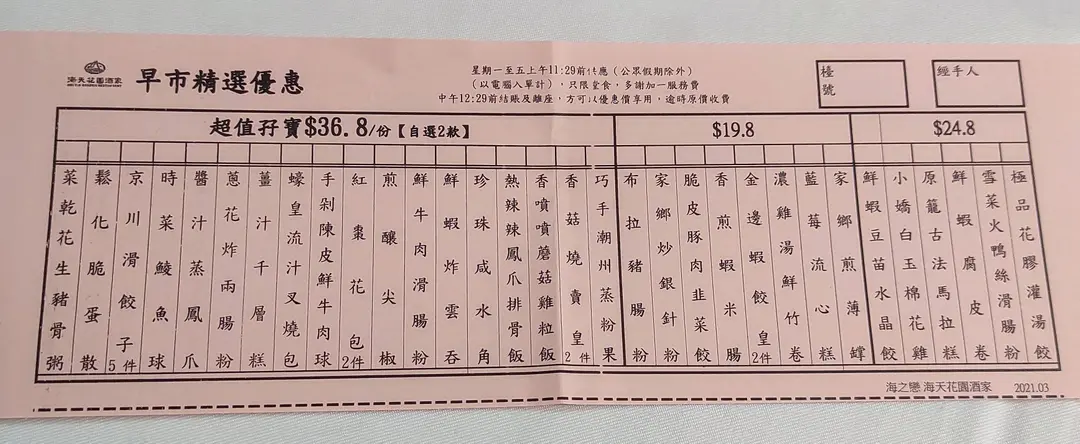 海天花園酒家
早市精選優惠
星期一至五上午11:29前供應（公眾假期除外）
（以電腦入單計），只限堂食，多謝加一服務費
中午12:29前結賬及離座，方可以優惠價享用，逾時原價收費
檯號
經手人
超值孖寶$36.8/份【自選2款】
$19.8
$24.8
菜乾花生豬骨粥
鬆化脆蛋散
京川滑餃子5件
時菜鯪魚球
醬汁蒸鳳爪
蔥花炸兩腸粉
薑汁千層糕
蠔皇流汁叉燒包
手剁陳皮鮮牛肉球
紅棗花包2件
煎釀尖椒
鮮牛肉滑腸粉
鮮蝦炸雲吞
珍珠咸水角
熱辣辣鳳爪排骨飯
香噴噴蘑菇雞粒飯
香菇燒賣皇2件
巧手潮州蒸粉果
布拉豬腸粉
家鄉炒銀針粉
脆皮豚肉韭菜餃
香煎蝦米腸
金邊蝦餃皇2件
濃雞湯鮮竹卷
藍莓流心糕
家鄉煎薄罉
鮮蝦豆苗水晶餃
小嬌白玉棉花雞
原籠古法馬拉糕
鮮蝦腐皮卷
雪菜火鴨絲滑腸粉
極品花膠灌湯餃
海之戀 海天花園酒家 2021.03